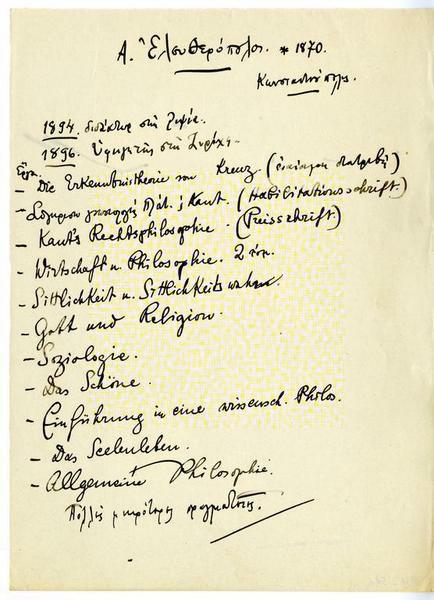 Α. Ἐλευθερόπουλος. * 1870.
Κωνσταντινούπολις.
1894. διδάκτωρ στὴ
1896. Ὑφηγητὴς στὴ Ζυρίχη.
Ἔργα.
– Die Erkenntnistheorie von Kreuz. (ἐναίσιμη διατριβή)
– Kant. (Habilitationsschrift.)
– Kants Rechtsphilosophie. (Preisschrift.)
– Wirtschaft u. Philosophie. 2 τόμ.
– Sittlichkeit u. Sittlichkeitswahn.
– Gott und Religion.
– Soziologie.
– Das Schöne.
– Einführung in eine wissensch. Philos.
– Das Seelenleben.
– Allgemeine Philosophie.
Πολλὲς μικρότερες πραγματεῖες.